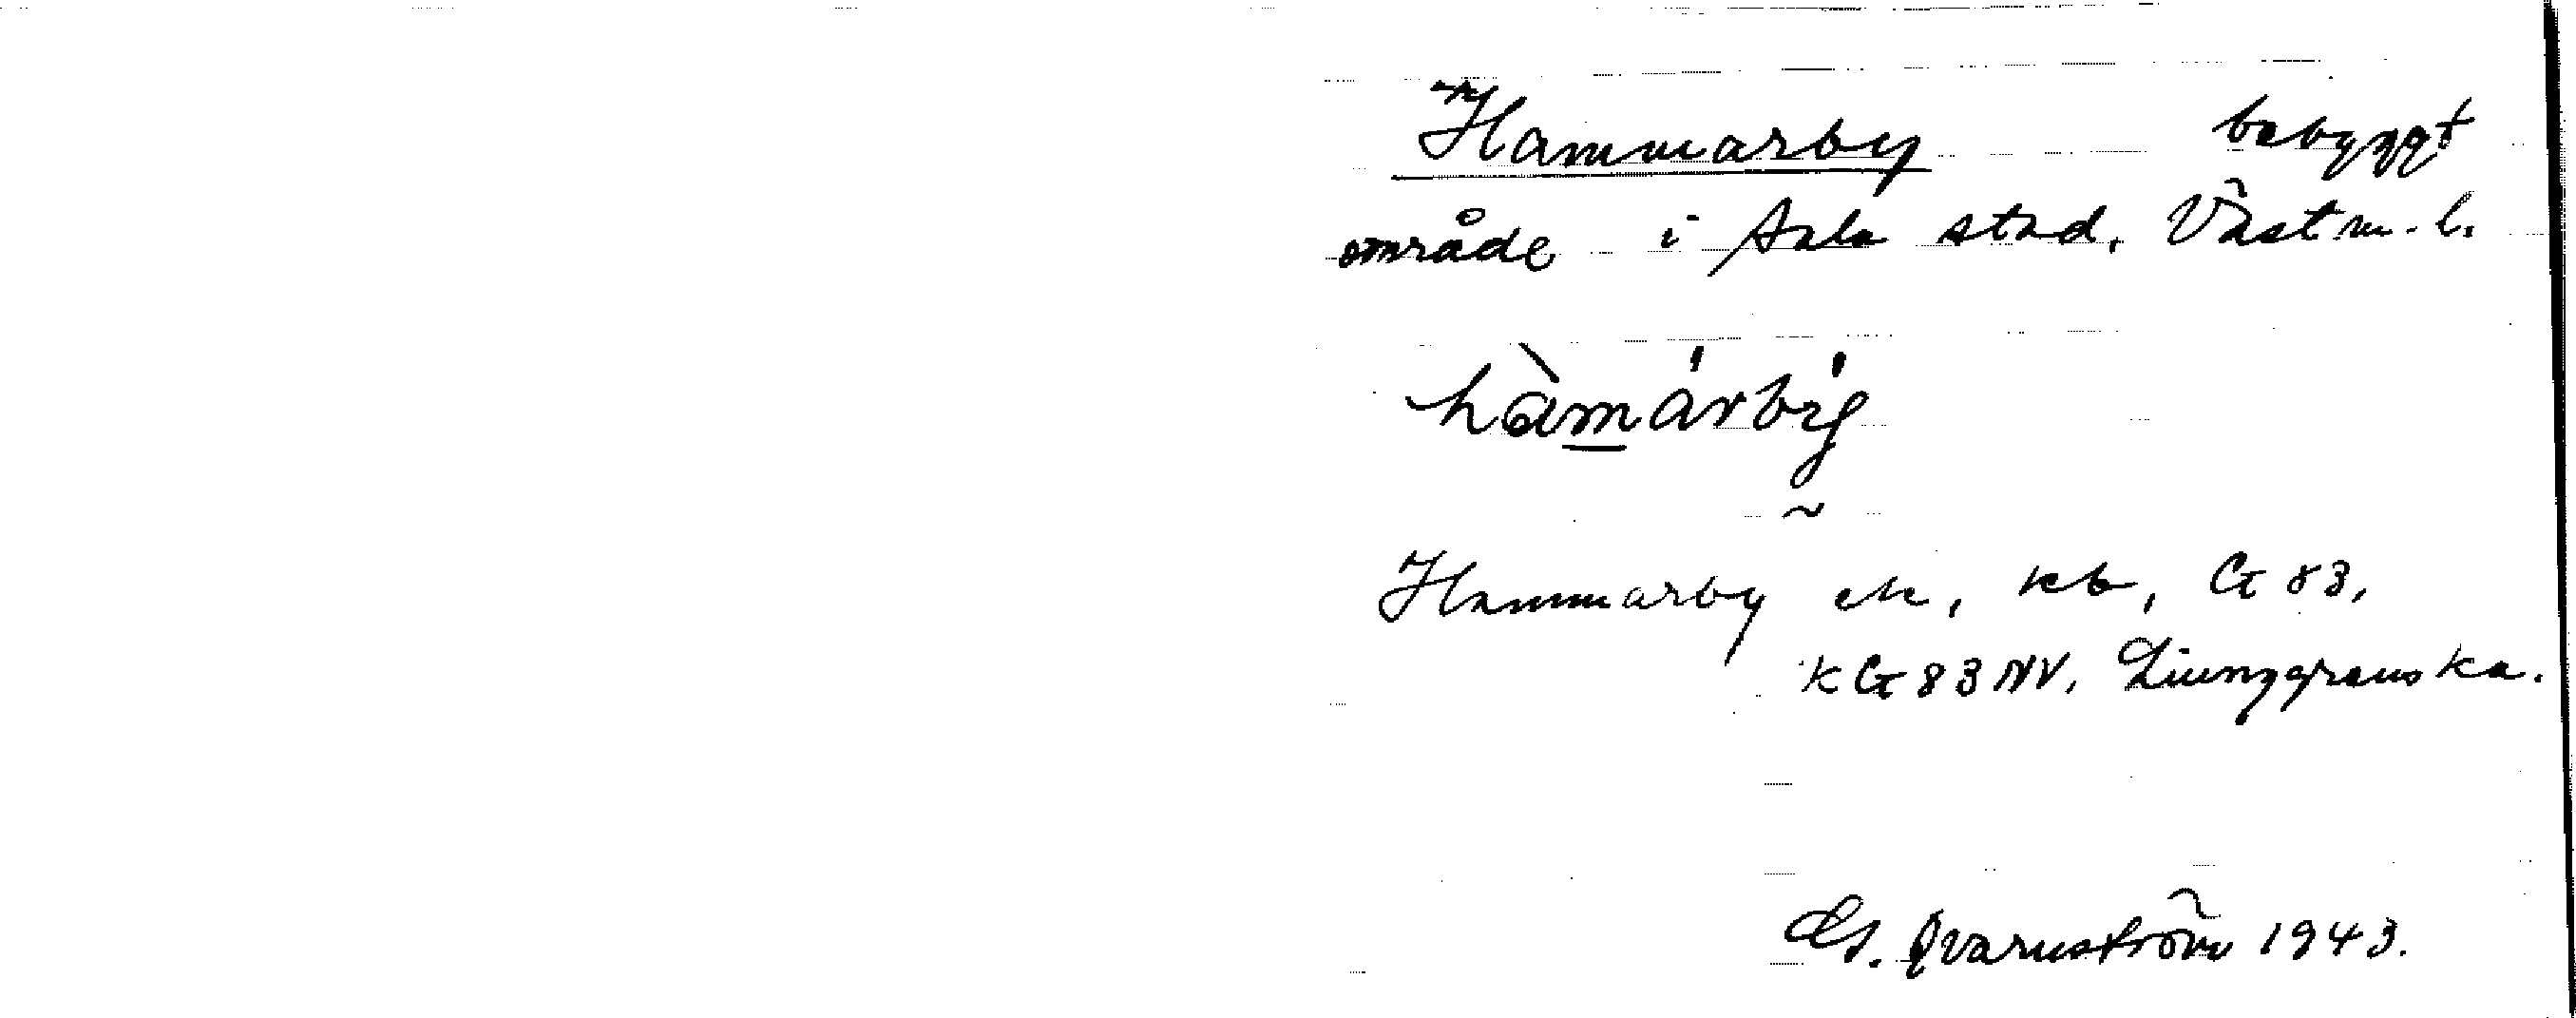 Hammarby bebyggt
område i Sala stad, Västm. l.
hàmárbý
Hammarby ek, kb, G 83,
KG 83 NV, Liunggrenska.
G. Qvarnström 1943.